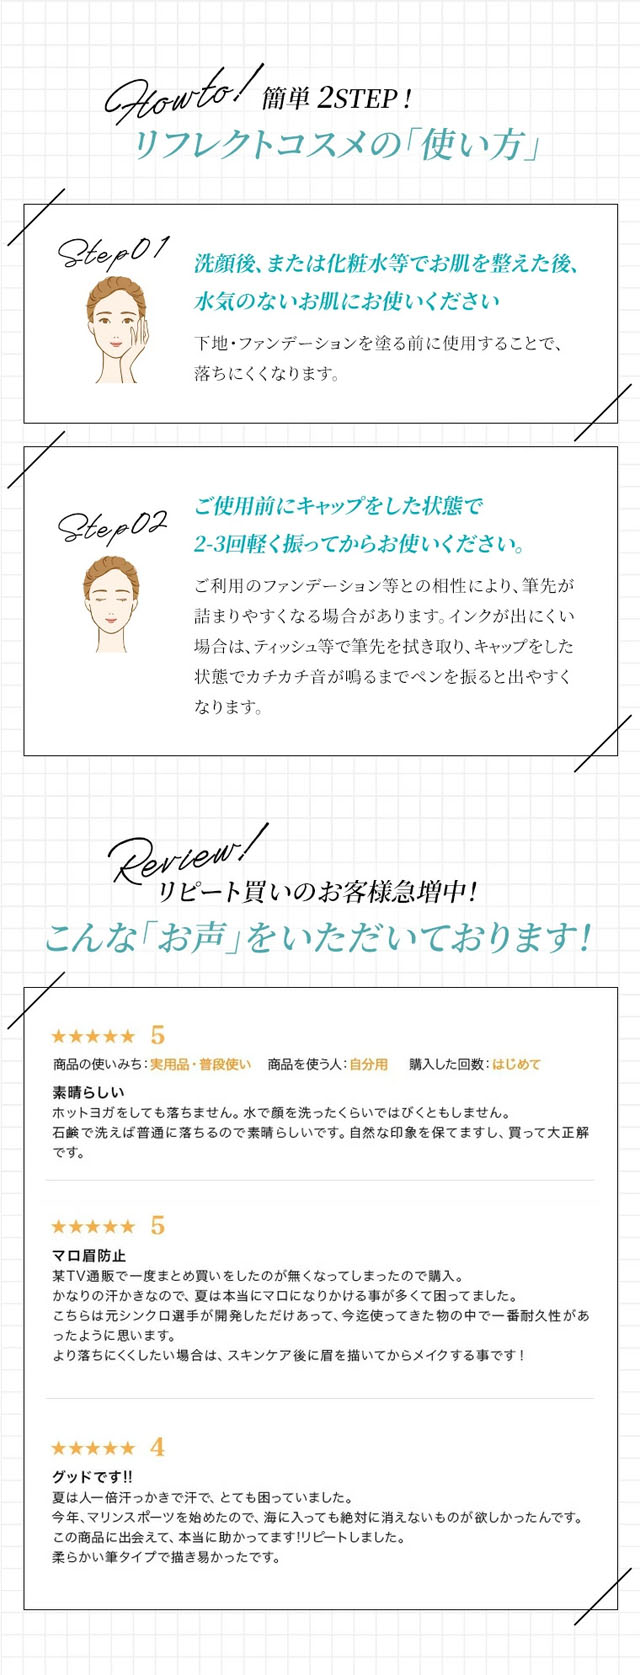 How to!
簡単 2STEP!
リフレクトコスメの「使い方」
Step01
洗顔後、または化粧水等でお肌を整えた後、
水気のないお肌にお使いください
下地・ファンデーションを塗る前に使用することで、
落ちにくくなります。
Step02
ご使用前にキャップをした状態で
2-3回軽く振ってからお使いください。
ご利用のファンデーション等との相性により、筆先が
詰まりやすくなる場合があります。インクが出にくい
場合は、ティッシュ等で筆先を拭き取り、キャップをした
状態でカチカチ音が鳴るまでペンを振ると出やすく
なります。
Review!
リピート買いのお客様急増中!
こんな「お声」をいただいております!
★★★★★ 5
商品の使いみち:実用品・普段使い 商品を使う人:自分用 購入した回数:はじめて
素晴らしい
ホットヨガをしても落ちません。水で顔を洗ったくらいではびくともしません。
石鹸で洗えば普通に落ちるので素晴らしいです。自然な印象を保てますし、買って大正解
です。
★★★★★ 5
マロ眉防止
某TV通販で一度まとめ買いをしたのが無くなってしまったので購入。
かなりの汗かきなので、夏は本当にマロになりかける事が多くて困ってました。
こちらは元シンクロ選手が開発しただけあって、今迄使ってきた物の中で一番耐久性があ
ったように思います。
より落ちにくくしたい場合は、スキンケア後に眉を描いてからメイクする事です!
★★★★★ 4
グッドです!!
夏は人一倍汗っかきで汗で、とても困っていました。
今年、マリンスポーツを始めたので、海に入っても絶対に消えないものが欲しかったんです。
この商品に出会えて、本当に助かってます!リピートしました。
柔らかい筆タイプで描き易かったです。